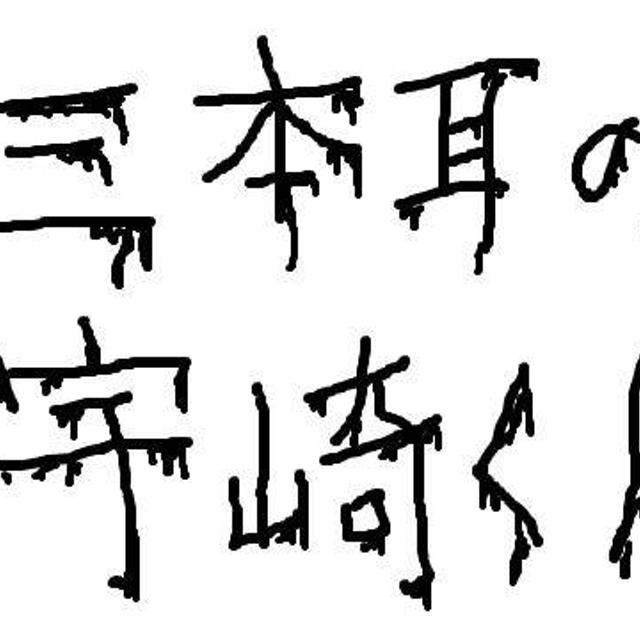 三本耳の
宇崎く